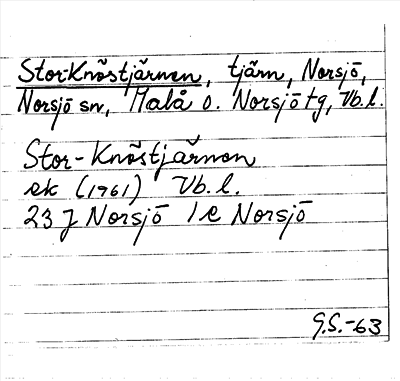 Stor-Knöstjärnen, tjärn, Norsjö,
Norsjö sn, Malå o. Norsjö tg, Vb.l.
Stor-Knöstjärnen
ek (1961) Vb.l.
23 J Norsjö 1 e Norsjö
G.S.-63